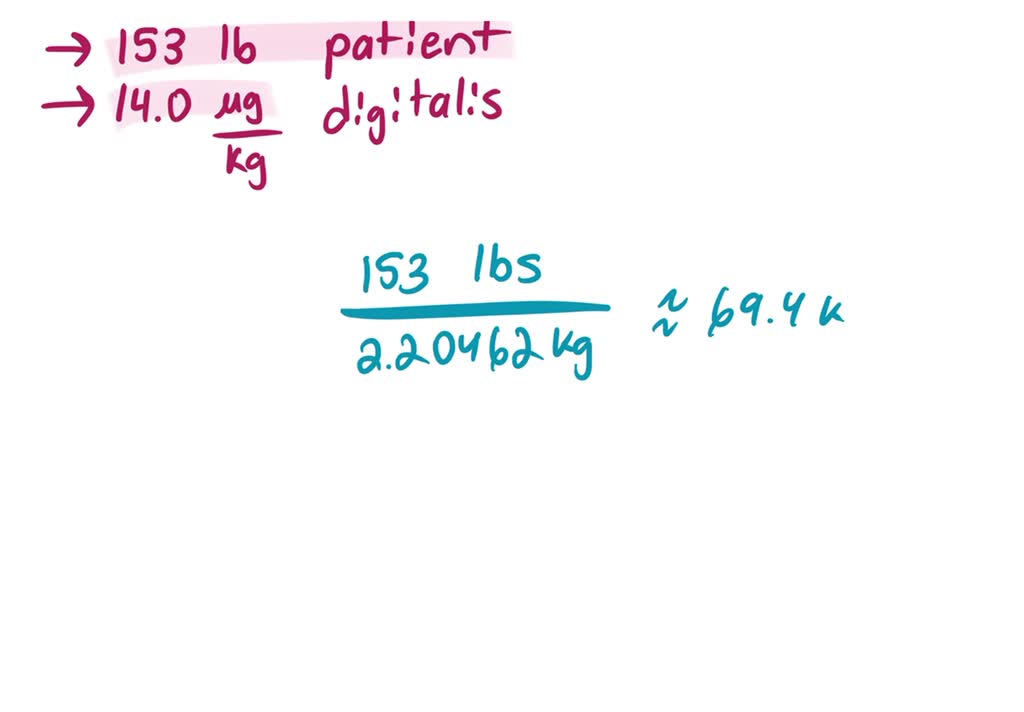 → 153 lb patient
→ 14.0 µg digitalis
kg
153 lbs
2.20462 kg
≈ 69.4 k